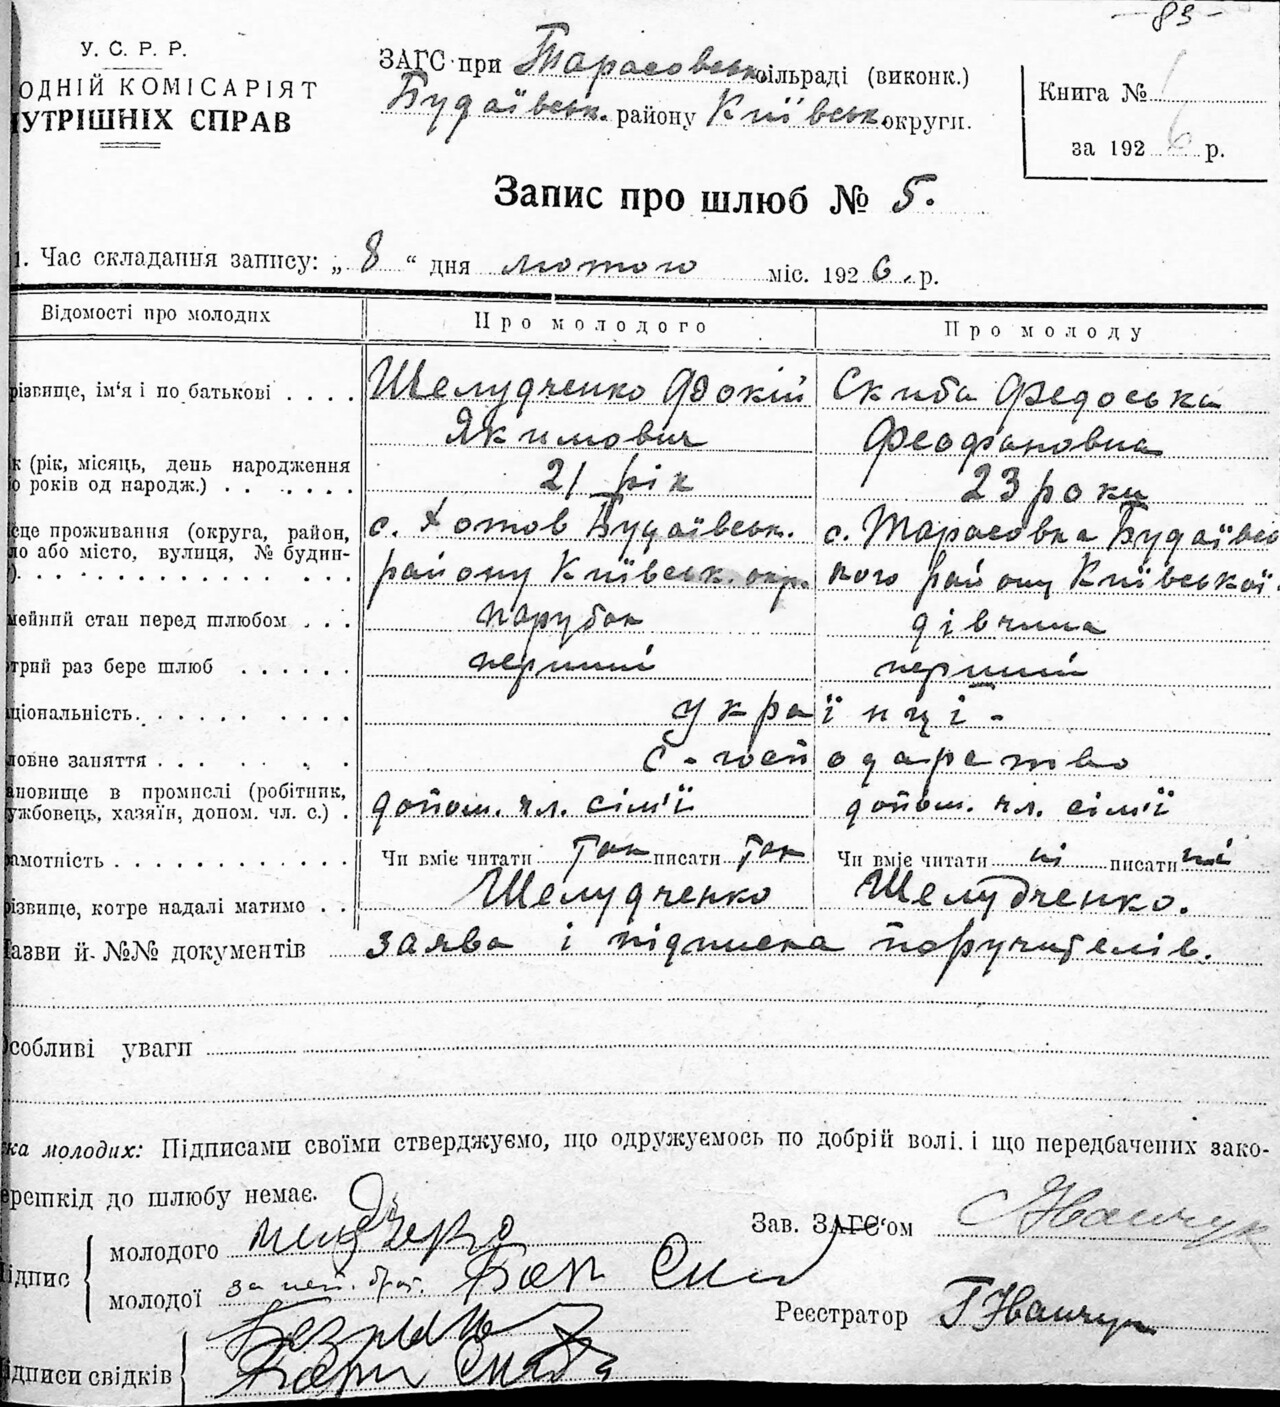 - 83 -
У. С. Р. Р.
ОДНІЙ КОМІСАРІЯТ
УТРІШНІХ СПРАВ
ЗАГС при Тарасовськ. сільраді (виконк.)
Будаївськ. району Київськ. округи.
Книга №
за 1926 р.
Запис про шлюб № 5.
1. Час складання запису: „ 8 “ дня лютого міс. 1926. р.
Відомості про молодих
Про молодого
Про молоду
різвище, ім'я і по батькові . . . .
Шелудченко Фокій
Якимович
Скиба Федоська
Феофановна
к (рік, місяць, день народження
о років од народж.) . . . . . . .
21 рік
23 роки
сце проживання (округа, район,
ло або місто, вулиця, № будин-
). . . . . . . . . . . . . . . .
с. Хотов Будаївськ.
району Київськ. окр.
с. Тарасовка Будаївсь
кого району Київської.
мейний стан перед шлюбом . . .
парубок
дівчина
трий раз бере шлюб . . . . . .
перший
перший
ціональність. . . . . . . . . .
українці -
ловне заняття . . . . . . . .
с.-господарство
ановище в промислі (робітник,
ужбовець, хазяїн, допом. чл. с.) .
допом. чл. сім'ї
допом. чл. сім'ї
амотність . . . . . . . . . . . .
Чи вміє читати так писати так
Чи вміє читати ні писати ні
різвище, котре надалі матимо . .
Шелудченко
Шелудченко.
азви й №№ документів заява і підписка поручителів.
собливі уваги
ка молодих: Підписами своїми стверджуємо, що одружуємось по добрій волі. і що передбачених зако-
ерешкід до шлюбу немає.
ідпис
молодого
молодої за неп. Скиб
Зав. ЗАГС'ом Іванчук
Реєстратор Г Іванчук
ідписи свідків
Скиба